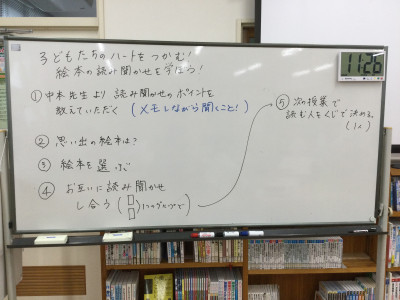 子どもたちのハートをつかむ!
絵本の読み聞かせを学ぼう!
① 中本先生より 読み聞かせのポイントを
教えていただく (メモしながら聞くこと!)
② 思い出の絵本は?
③ 絵本を選ぶ
④ お互いに読み聞かせ
し合う
⑤ 次の授業で
読む人をくじで決める。
(1人)
11:26